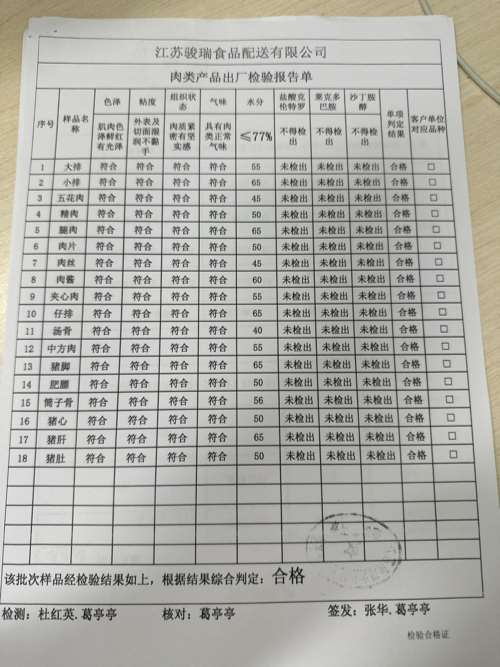 江苏骏瑞食品配送有限公司
肉类产品出厂检验报告单
序号 样品名称 色泽 粘度 组织状态 气味 水分 盐酸克伦特罗 莱克多巴胺 沙丁胺醇 单项判定结果 客户单位对应品种
肌肉色泽鲜红有光泽 外表及切面湿润不黏手 肉质紧密有坚实感 具有肉类正常气味 ≤77% 不得检出 不得检出 不得检出
1 大排 符合 符合 符合 符合 55 未检出 未检出 未检出 合格 □
2 小排 符合 符合 符合 符合 65 未检出 未检出 未检出 合格 □
3 五花肉 符合 符合 符合 符合 45 未检出 未检出 未检出 合格 □
4 精肉 符合 符合 符合 符合 50 未检出 未检出 未检出 合格 □
5 腿肉 符合 符合 符合 符合 65 未检出 未检出 未检出 合格 □
6 肉片 符合 符合 符合 符合 50 未检出 未检出 未检出 合格 □
7 肉丝 符合 符合 符合 符合 45 未检出 未检出 未检出 合格 □
8 肉酱 符合 符合 符合 符合 60 未检出 未检出 未检出 合格 □
9 夹心肉 符合 符合 符合 符合 55 未检出 未检出 未检出 合格 □
10 仔排 符合 符合 符合 符合 65 未检出 未检出 未检出 合格 □
11 汤骨 符合 符合 符合 符合 40 未检出 未检出 未检出 合格 □
12 中方肉 符合 符合 符合 符合 55 未检出 未检出 未检出 合格 □
13 猪脚 符合 符合 符合 符合 65 未检出 未检出 未检出 合格 □
14 肥膘 符合 符合 符合 符合 50 未检出 未检出 未检出 合格 □
15 筒子骨 符合 符合 符合 符合 56 未检出 未检出 未检出 合格 □
16 猪心 符合 符合 符合 符合 50 未检出 未检出 未检出 合格 □
17 猪肝 符合 符合 符合 符合 65 未检出 未检出 未检出 合格 □
18 猪肚 符合 符合 符合 符合 50 未检出 未检出 未检出 合格 □
该批次样品经检验结果如上，根据结果综合判定：合格
检测：杜红英.葛亭亭 核对：葛亭亭 签发：张华.葛亭亭
检验合格证